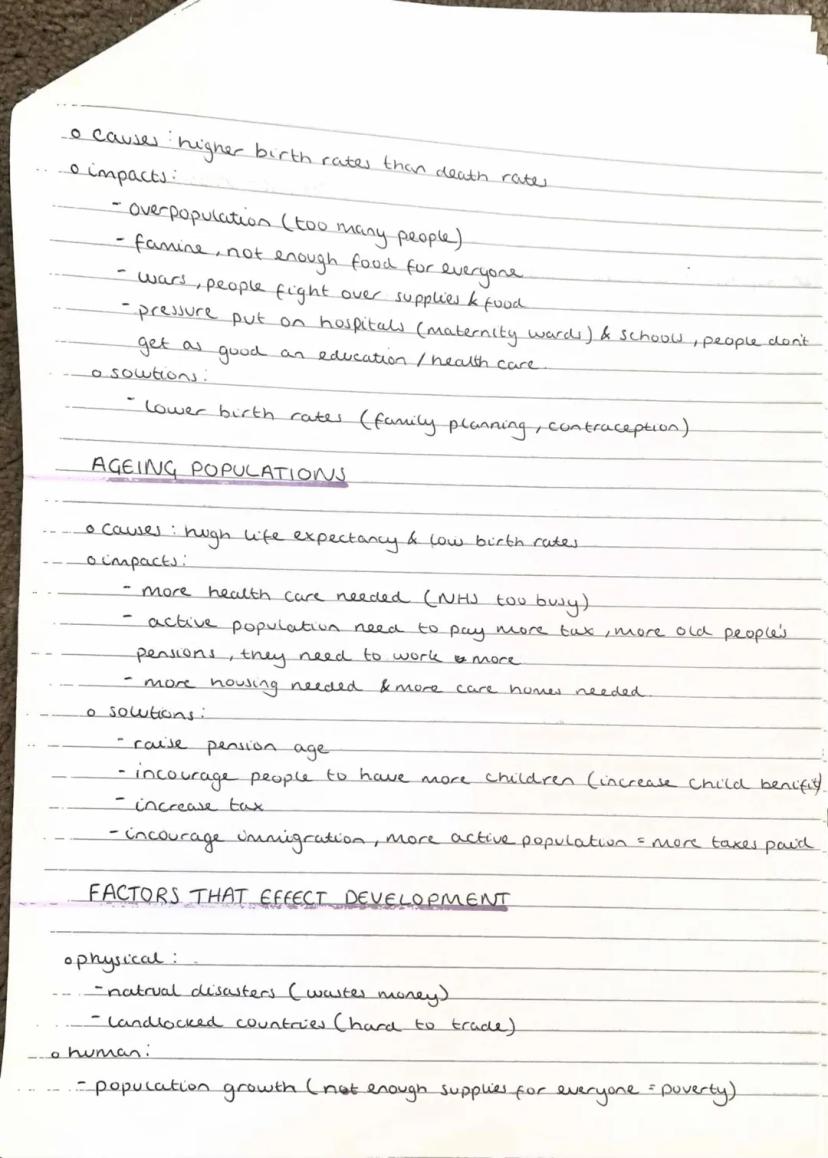 o causes : higher birth rates than death rates
o impacts :
- overpopulation (too many people)
- famine, not enough food for everyone
- wars, people fight over supplies & food
- pressure put on hospitals (maternity wards) & schools, people don't
get as good an education / health care.
o solutions :
- lower birth rates (family planning, contraception)
AGEING POPULATIONS
o causes : high life expectancy & low birth rates
o impacts :
- more health care needed (NHS too busy)
- active population need to pay more tax, more old people's
pensions, they need to work more
- more housing needed & more care homes needed.
o solutions :
- raise pension age
- incourage people to have more children (increase child benifit)
- increase tax
- incourage immigration, more active population = more taxes paid
FACTORS THAT EFFECT DEVELOPMENT
o physical :
- natrual disasters (wastes money)
- landlocked countries (hard to trade)
o human :
- population growth (not enough supplies for everyone = poverty)